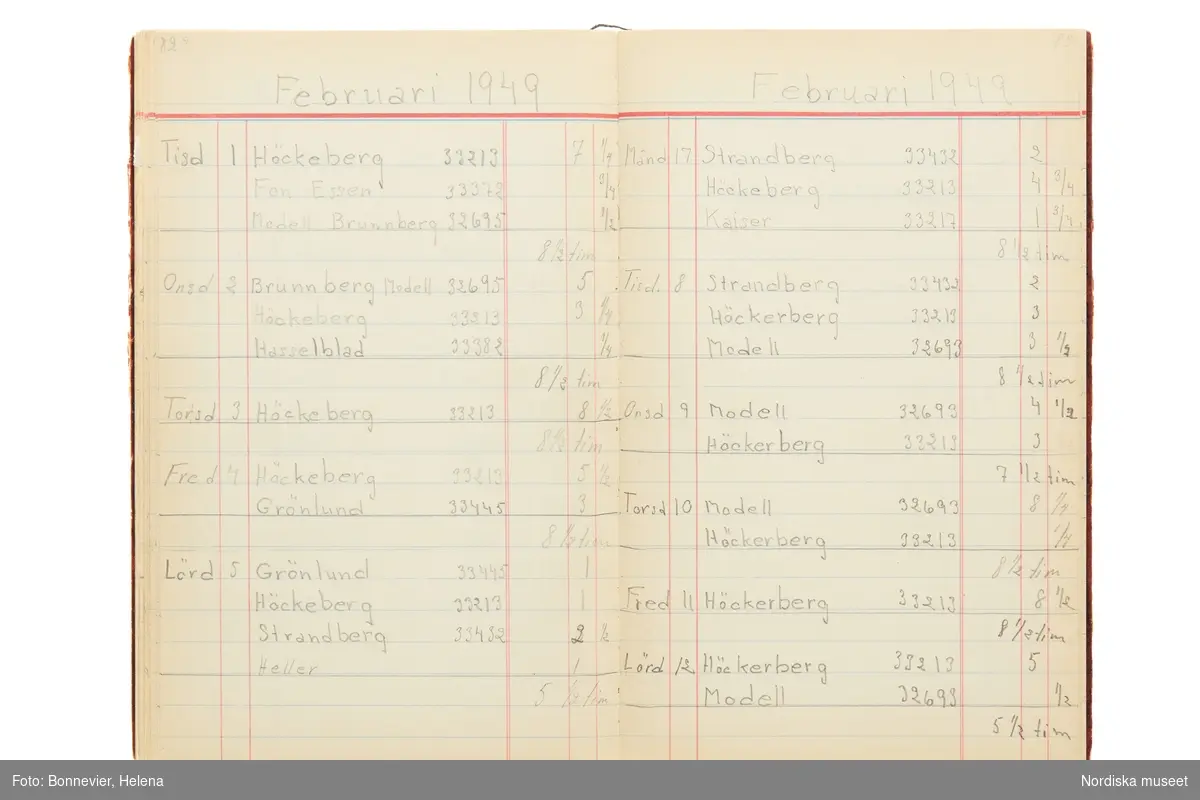 82
Februari 1949
Tisd 1 Höckeberg 33213 7 1/4
Fon Essen 33372 3/4
Modell Brunnberg 32695 1/2
8 1/2 tim
Onsd 2 Brunnberg Modell 32695 5
Höckeberg 33213 3 1/4
Hasselblad 33382 1/4
8 1/2 tim
Torsd 3 Höckeberg 33213 8 1/2
8 1/2 tim
Fred 4 Höckeberg 33213 5 1/2
Grönlund 33445 3
8 1/2 tim
Lörd 5 Grönlund 33445 1
Höckeberg 33213 1
Strandberg 33432 2 1/2
Heller 1
5 1/2 tim
Februari 1949
Månd 7 Strandberg 33432 2
Höckeberg 33213 4 3/4
Kaiser 33217 1 3/4
8 1/2 tim
Tisd. 8 Strandberg 33432 2
Höckerberg 33213 3
Modell 32693 3 1/2
8 1/2 tim
Onsd 9 Modell 32693 4 1/2
Höckerberg 33213 3
7 1/2 tim
Torsd 10 Modell 32693 8 1/4
Höckerberg 33213 1/4
8 1/2 tim
Fred 11 Höckerberg 33213 8 1/2
8 1/2 tim
Lörd 12 Höckerberg 33213 5
Modell 32693 1/2
5 1/2 tim
Foto: Bonnevier, Helena
Nordiska museet